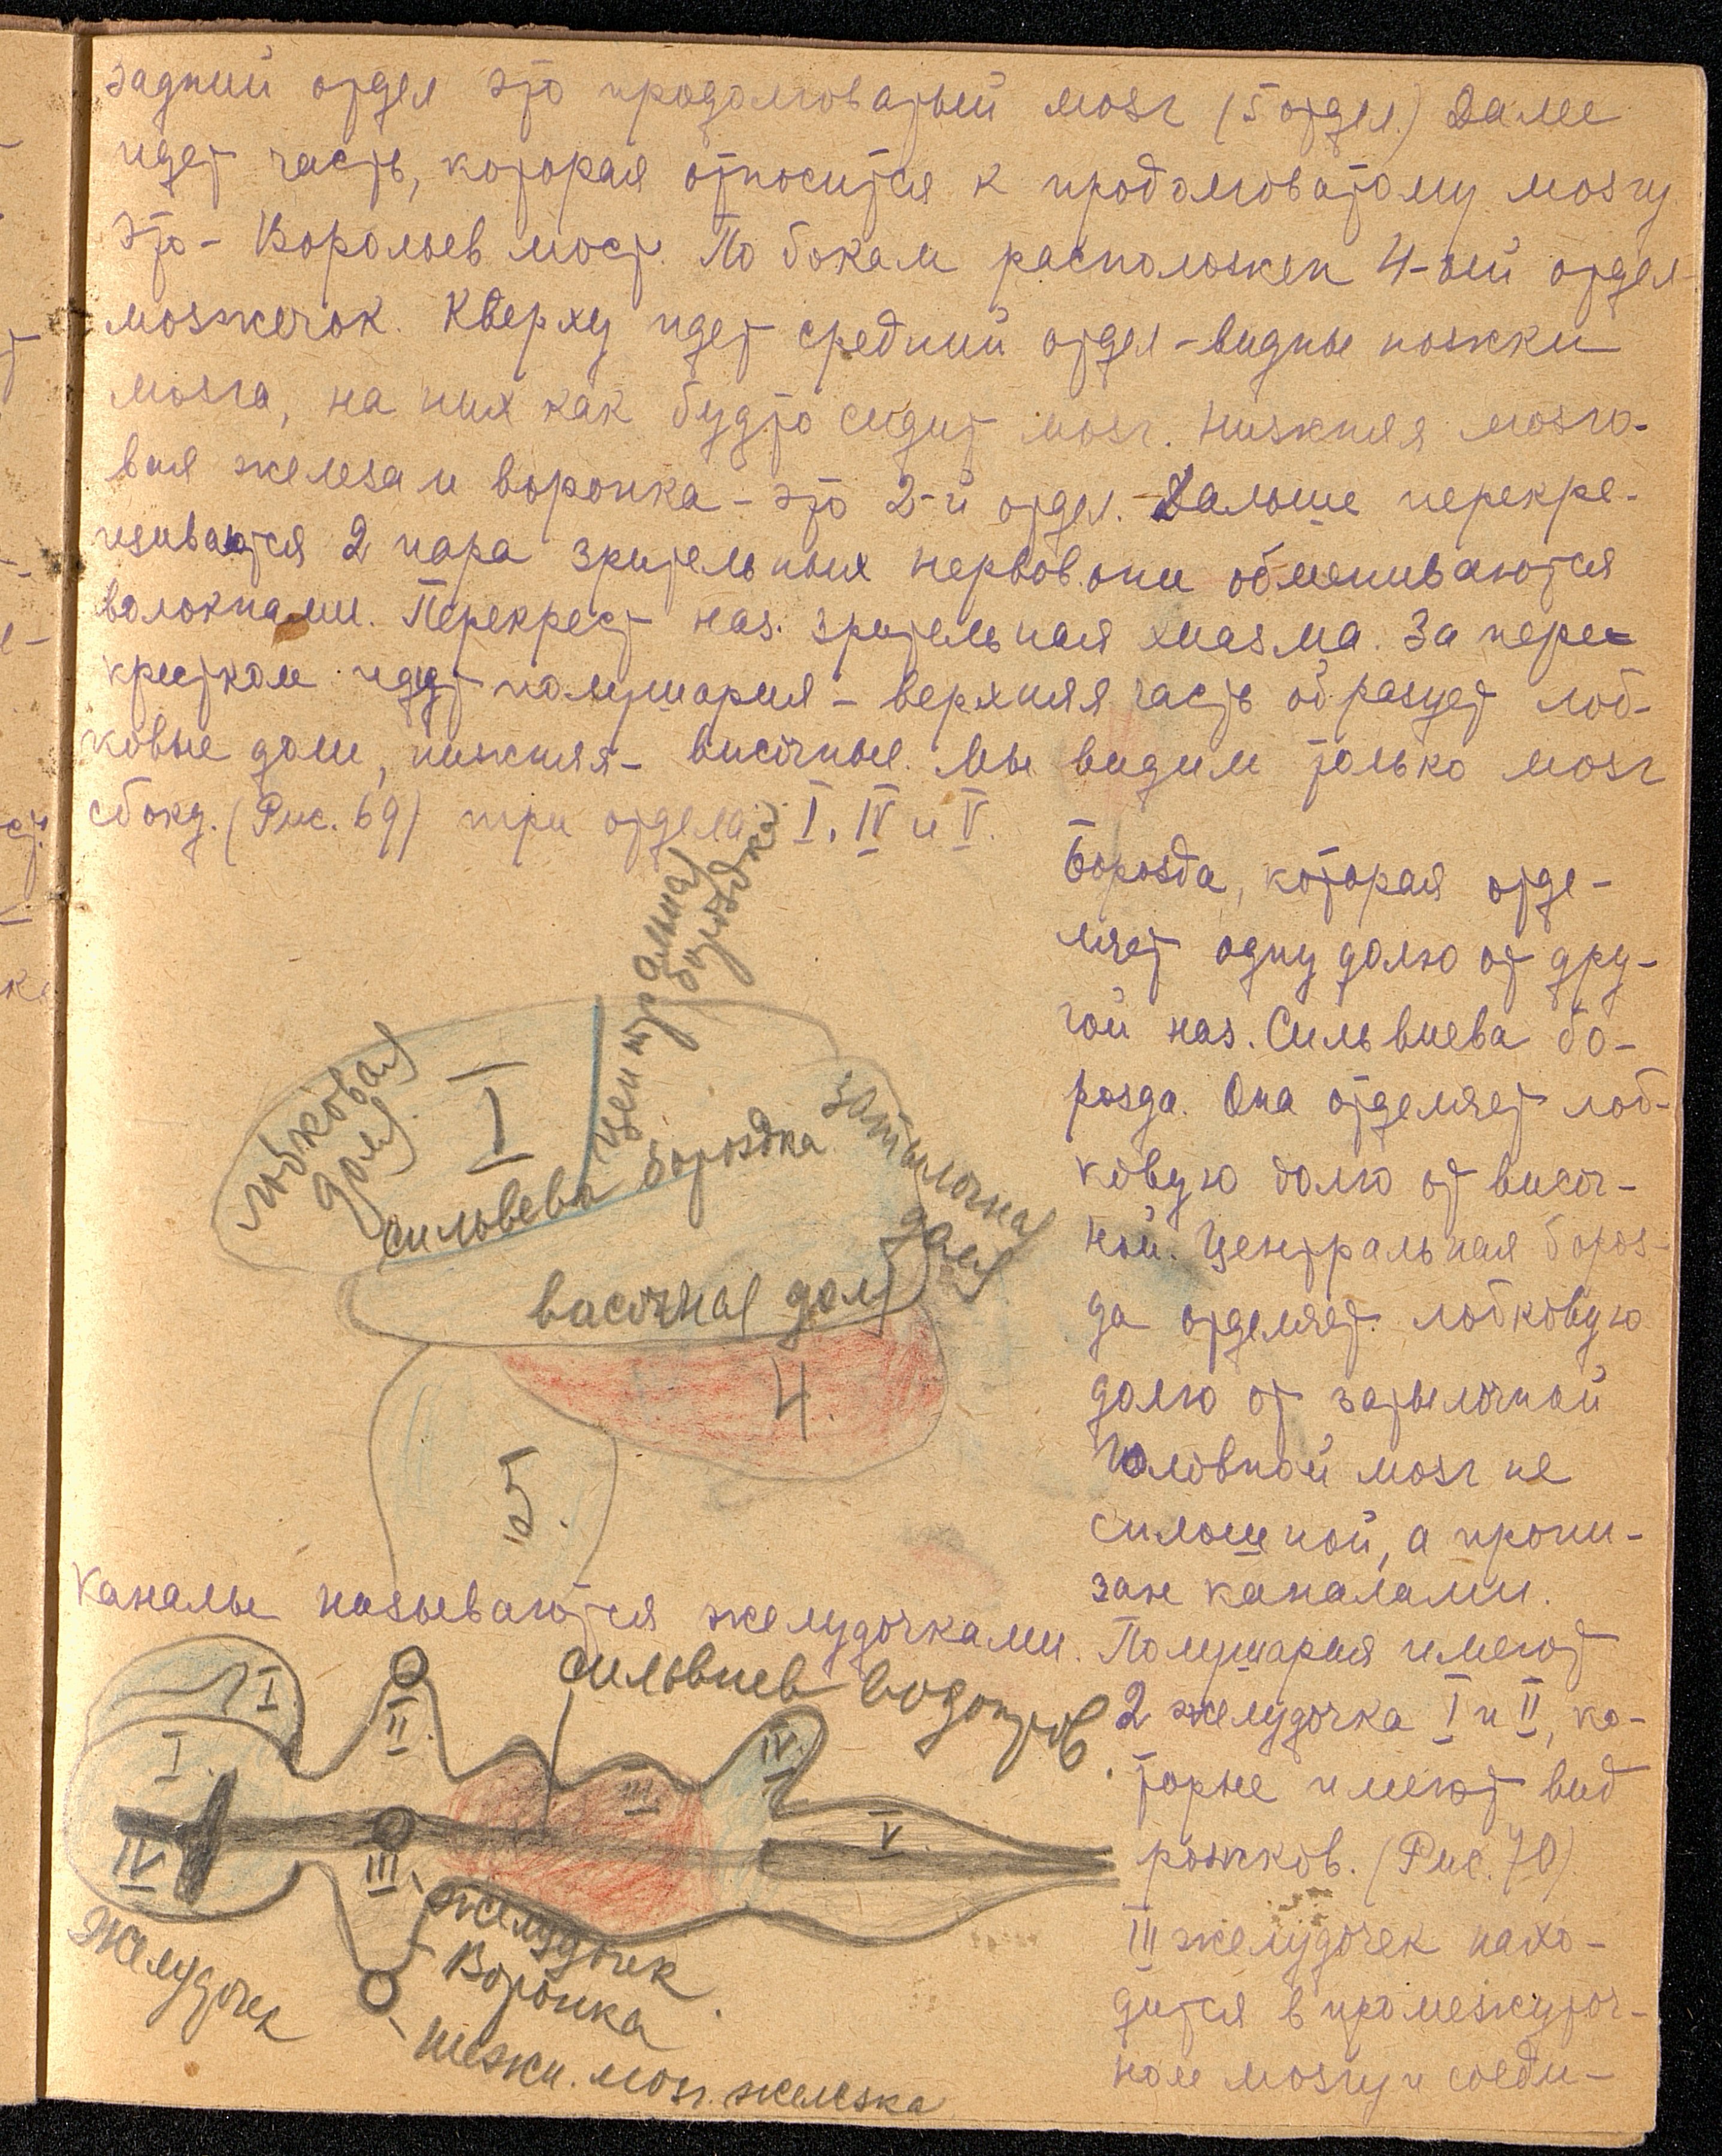 задний отдел это продолговатый мозг (5 отдел.) Далее
идет часть, которая относится к продолговатому мозгу
это - Варольев мост. По бокам расположен 4-ый отдел
мозжечок. Кверху идет средний отдел - видны ножки
мозга, на них как будто сидит мозг. Нижняя мозго-
вая железа и воронка - это 2-й отдел. Дальше перекре-
щиваются 2 пара зрительных нервов. они обмениваются
волокнами. Перекрест наз. зрительная хиазма. За пере-
крестком идут полушария - верхняя часть образует лоб-
ковые доли, нижняя - височные. Мы видим только мозг
сбоку. (Рис. 69) три отдела I, IV и V.
Борозда, которая отде-
ляет одну долю от дру-
гой наз. Сильвиева бо-
розда. Она отделяет лоб-
ковую долю от височ-
ной. Центральная бороз-
да отделяет лобковую
долю от затылочной
Головной мозг не
сплошной, а прони-
зан каналами.
центральная
бороздка
лобковая
доля
I
сильвева бороздка
затылочная
доля
височная доля
4.
5.
Каналы называются желудочками. Полушария имеют
2 желудочка I и II, ко-
торые имеют вид
рожков. (Рис. 70).
III желудочек нахо-
дится в промежуточ-
ном мозгу и соеди-
сильвиев водопров.
I
II
I
III
IV
V
IV
III
желудочек
Воронка
Желудочек
Нижн. мозг. железка